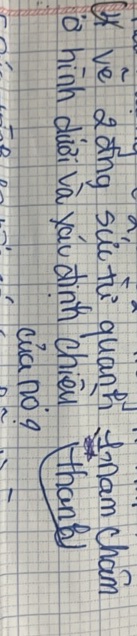 vẽ 2 đg sức từ quanh nam châm
ở hình dưới và xác định chiều
của nó?
thanh